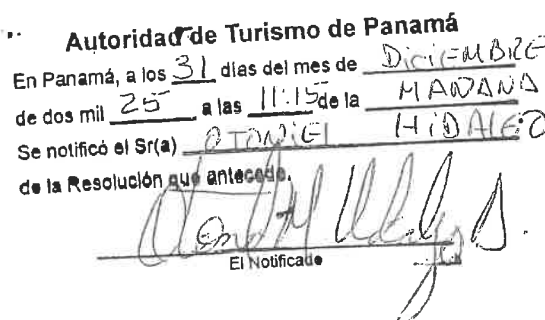 Autoridad de Turismo de Panamá
En Panamá, a los 31 días del mes de DiciEMBRE
de dos mil 25 a las 11:15 de la MAÑANA
Se notificó el Sr(a) OTONIEl HiDAlGO
de la Resolución que antecede.
El Notificado